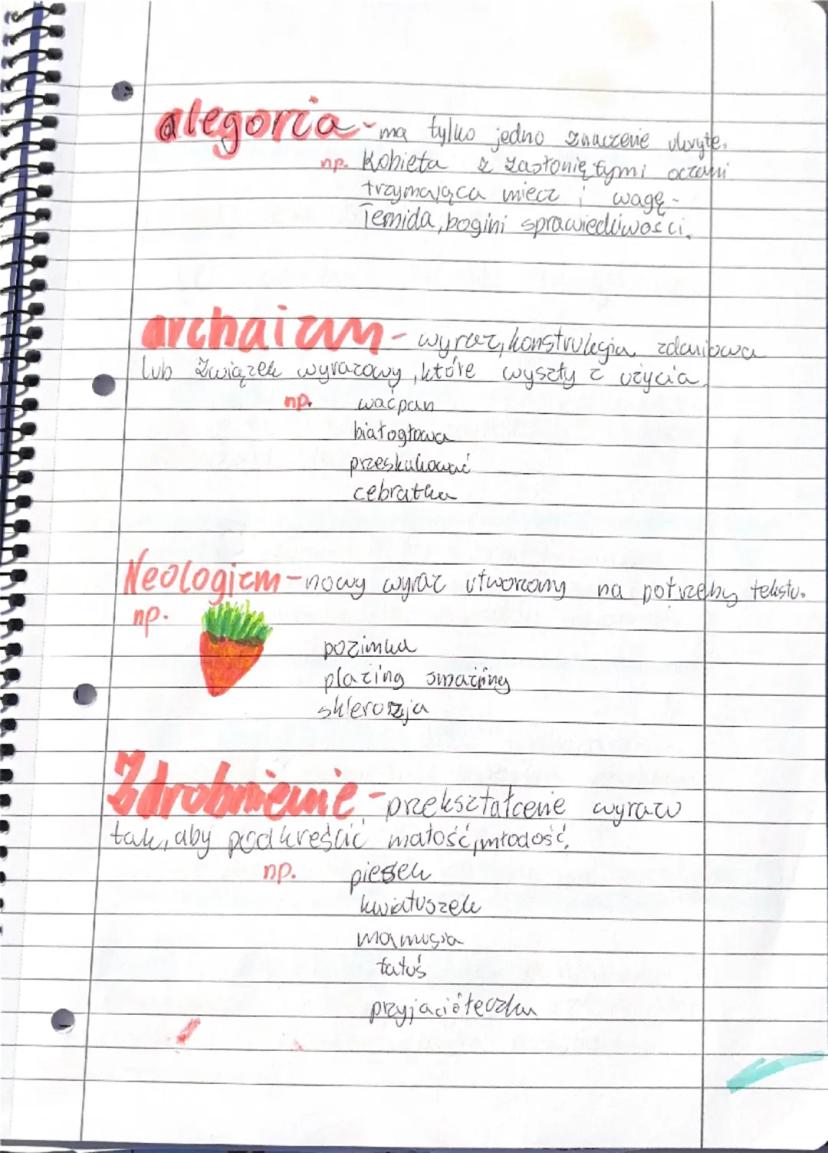 alegoria - ma tylko jedno znaczenie ukryte.
np. Kobieta z zasłoniętymi oczami
trzymająca miecz i wagę -
Temida, bogini sprawiedliwości.
archaizm - wyraz, konstrukcja zdaniowa
lub związek wyrazowy, które wyszły z użycia
np. wacpan
białogłowa
cebratka
Neologizm - nowy wyraz utworzony na potrzeby tekstu.
np.
pozimka
plażing smażing
Zdrobnienie - przekształcenie wyrazu
tak, aby podkreślić małość, młodość.
np. piesek
kwiatuszek
mamusia
tatuś
przyjaciółeczka